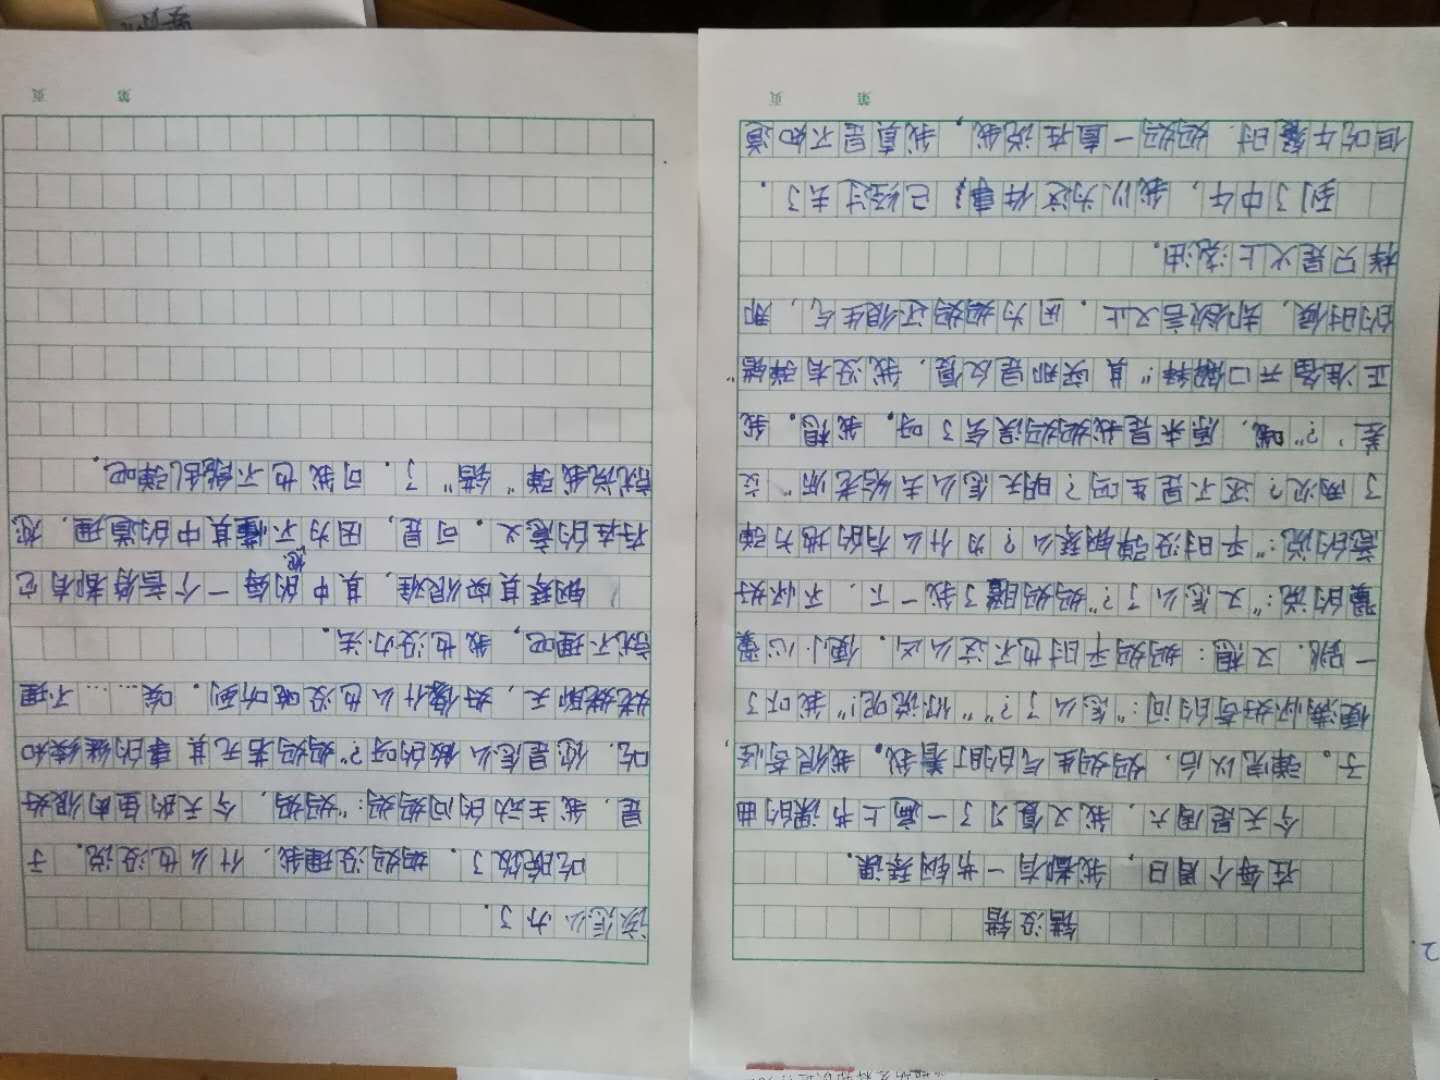 错没错
在每个周日，我都有一节钢琴课。
今天是周六，我又复习了一遍上节课的曲
子。弹完以后，妈妈生气的盯着我。我很奇怪，
便满怀好奇的问：“怎么了？”“你说呢！”我吓了
一跳，又想：妈妈平时也不这么凶，便小心翼
翼的说：“又怎么了？”妈妈瞪了我一下，不怀好
意的说：“平时没弹钢琴么？为什么有的地方弹
了两次？还不是生吗？明天怎么去给老师“交
差’？”哦，原来是我妈妈误会了呀。我想。我
正准备开口解释“其实那是反复，我没有弹错”
的时候，却欲言又止，因为妈妈还很生气，那
样只是火上浇油。
到了中午，我以为这件事，已经过去了。
但吃午餐时，妈妈一直在说我，我真是不知道
第 页
该怎么办了。
吃晚饭了，妈妈没理我，什么也没说，于
是，我主动的问妈妈：“妈妈，今天的鱼肉很好
吃，您是怎么做的呀？”妈妈若无其事的继续和
姥姥聊天，好像什么也没听到。唉……不理
就不理吧，我也没办法。
钢琴其实很难，其中的每一个音符都有它
存在的意义。可是，因为您不懂其中的道理，您
就说我弹“错”了。可我也不能乱弹吧。
第 页